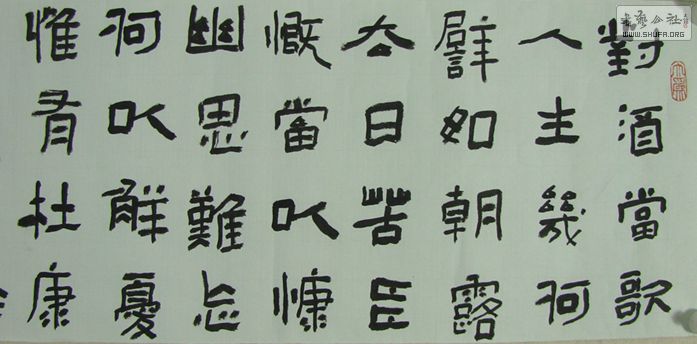 對酒當歌
人生幾何
譬如朝露
去日苦多
慨當以慷
幽思難忘
何以解憂
惟有杜康
书艺公社
WWW.SHUFA.ORG